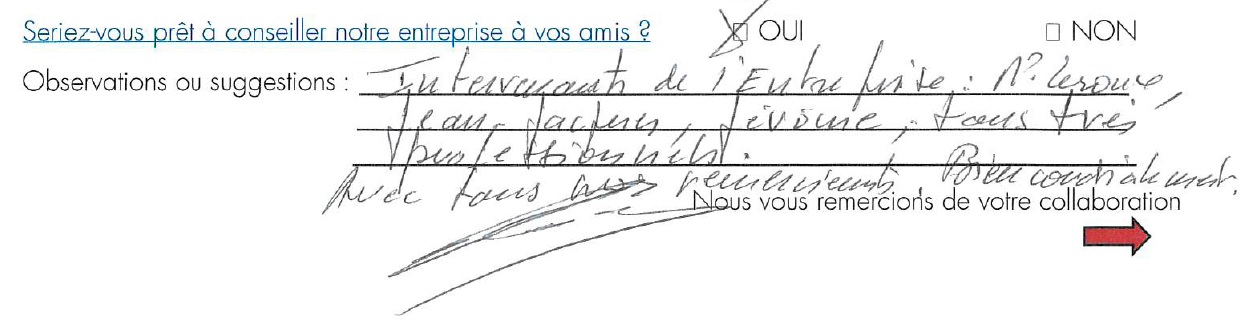 Seriez-vous prêt à conseiller notre entreprise à vos amis ? OUI NON
Observations ou suggestions : Intervenants de l'Entreprise : Mr Leroux,
Jean-Jacques, Jérôme, tous très
professionnels.
Avec tous nos remerciements, Bien cordialement.
Nous vous remercions de votre collaboration